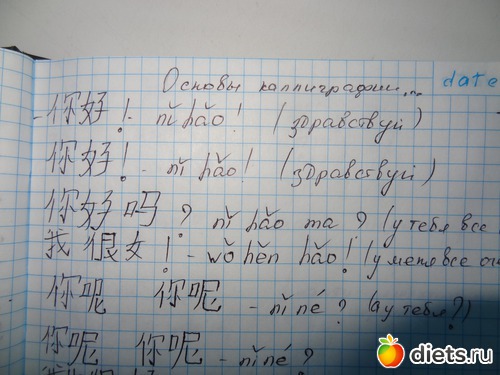 Основы каллиграфии...
date
- 你好! - nǐ hǎo! (здравствуй)
你好! - nǐ hǎo! (здравствуй)
你好吗? nǐ hǎo ma? (у тебя все
我很好! - wǒ hěn hǎo! (у меня все
你呢 你呢 - nǐ né? (а у тебя?)
你呢 你呢 - nǐ né?
diets.ru